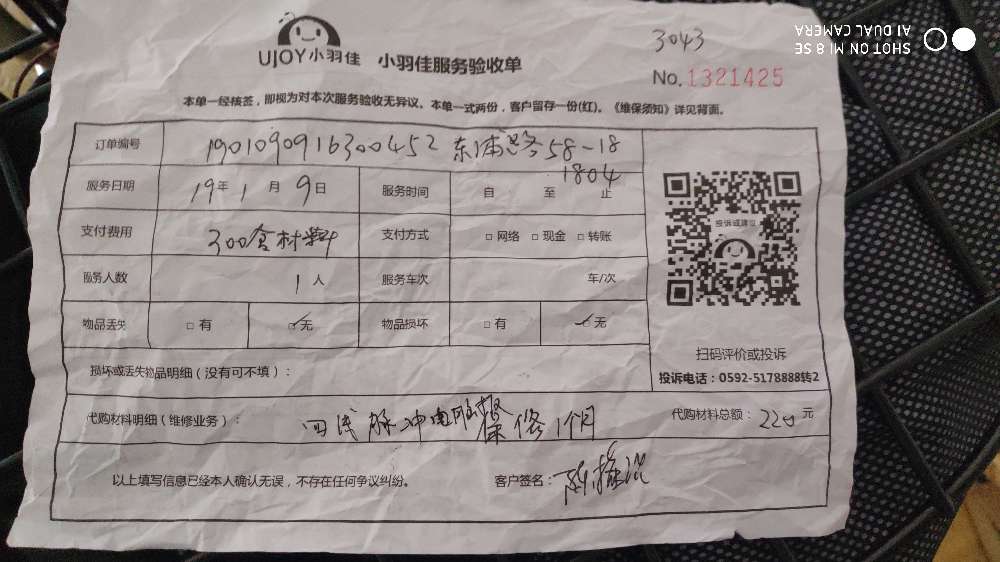 SHOT ON MI 8 SE
AI DUAL CAMERA
3043
UJOY小羽佳 小羽佳服务验收单
No.1321425
本单一经核签，即视为对本次服务验收无异议。本单一式两份，客户留存一份(红)。《维保须知》详见背面。
订单编号 1901090916300452 东浦路58-18
1804
服务日期 19年1月9日 服务时间 自 至 止
支付费用 300含材料 支付方式 □网络 □现金 □转账
服务人数 1人 服务车次 车/次
物品丢失 □有 ☑无 物品损坏 □有 ☑无
投诉或建议
扫码评价或投诉
投诉电话：0592-5178888转2
损坏或丢失物品明细（没有可不填）：
代购材料明细（维修业务）： 四线脉冲电脑 保修1个月 代购材料总额：220元
以上填写信息已经本人确认无误，不存在任何争议纠纷。 客户签名：